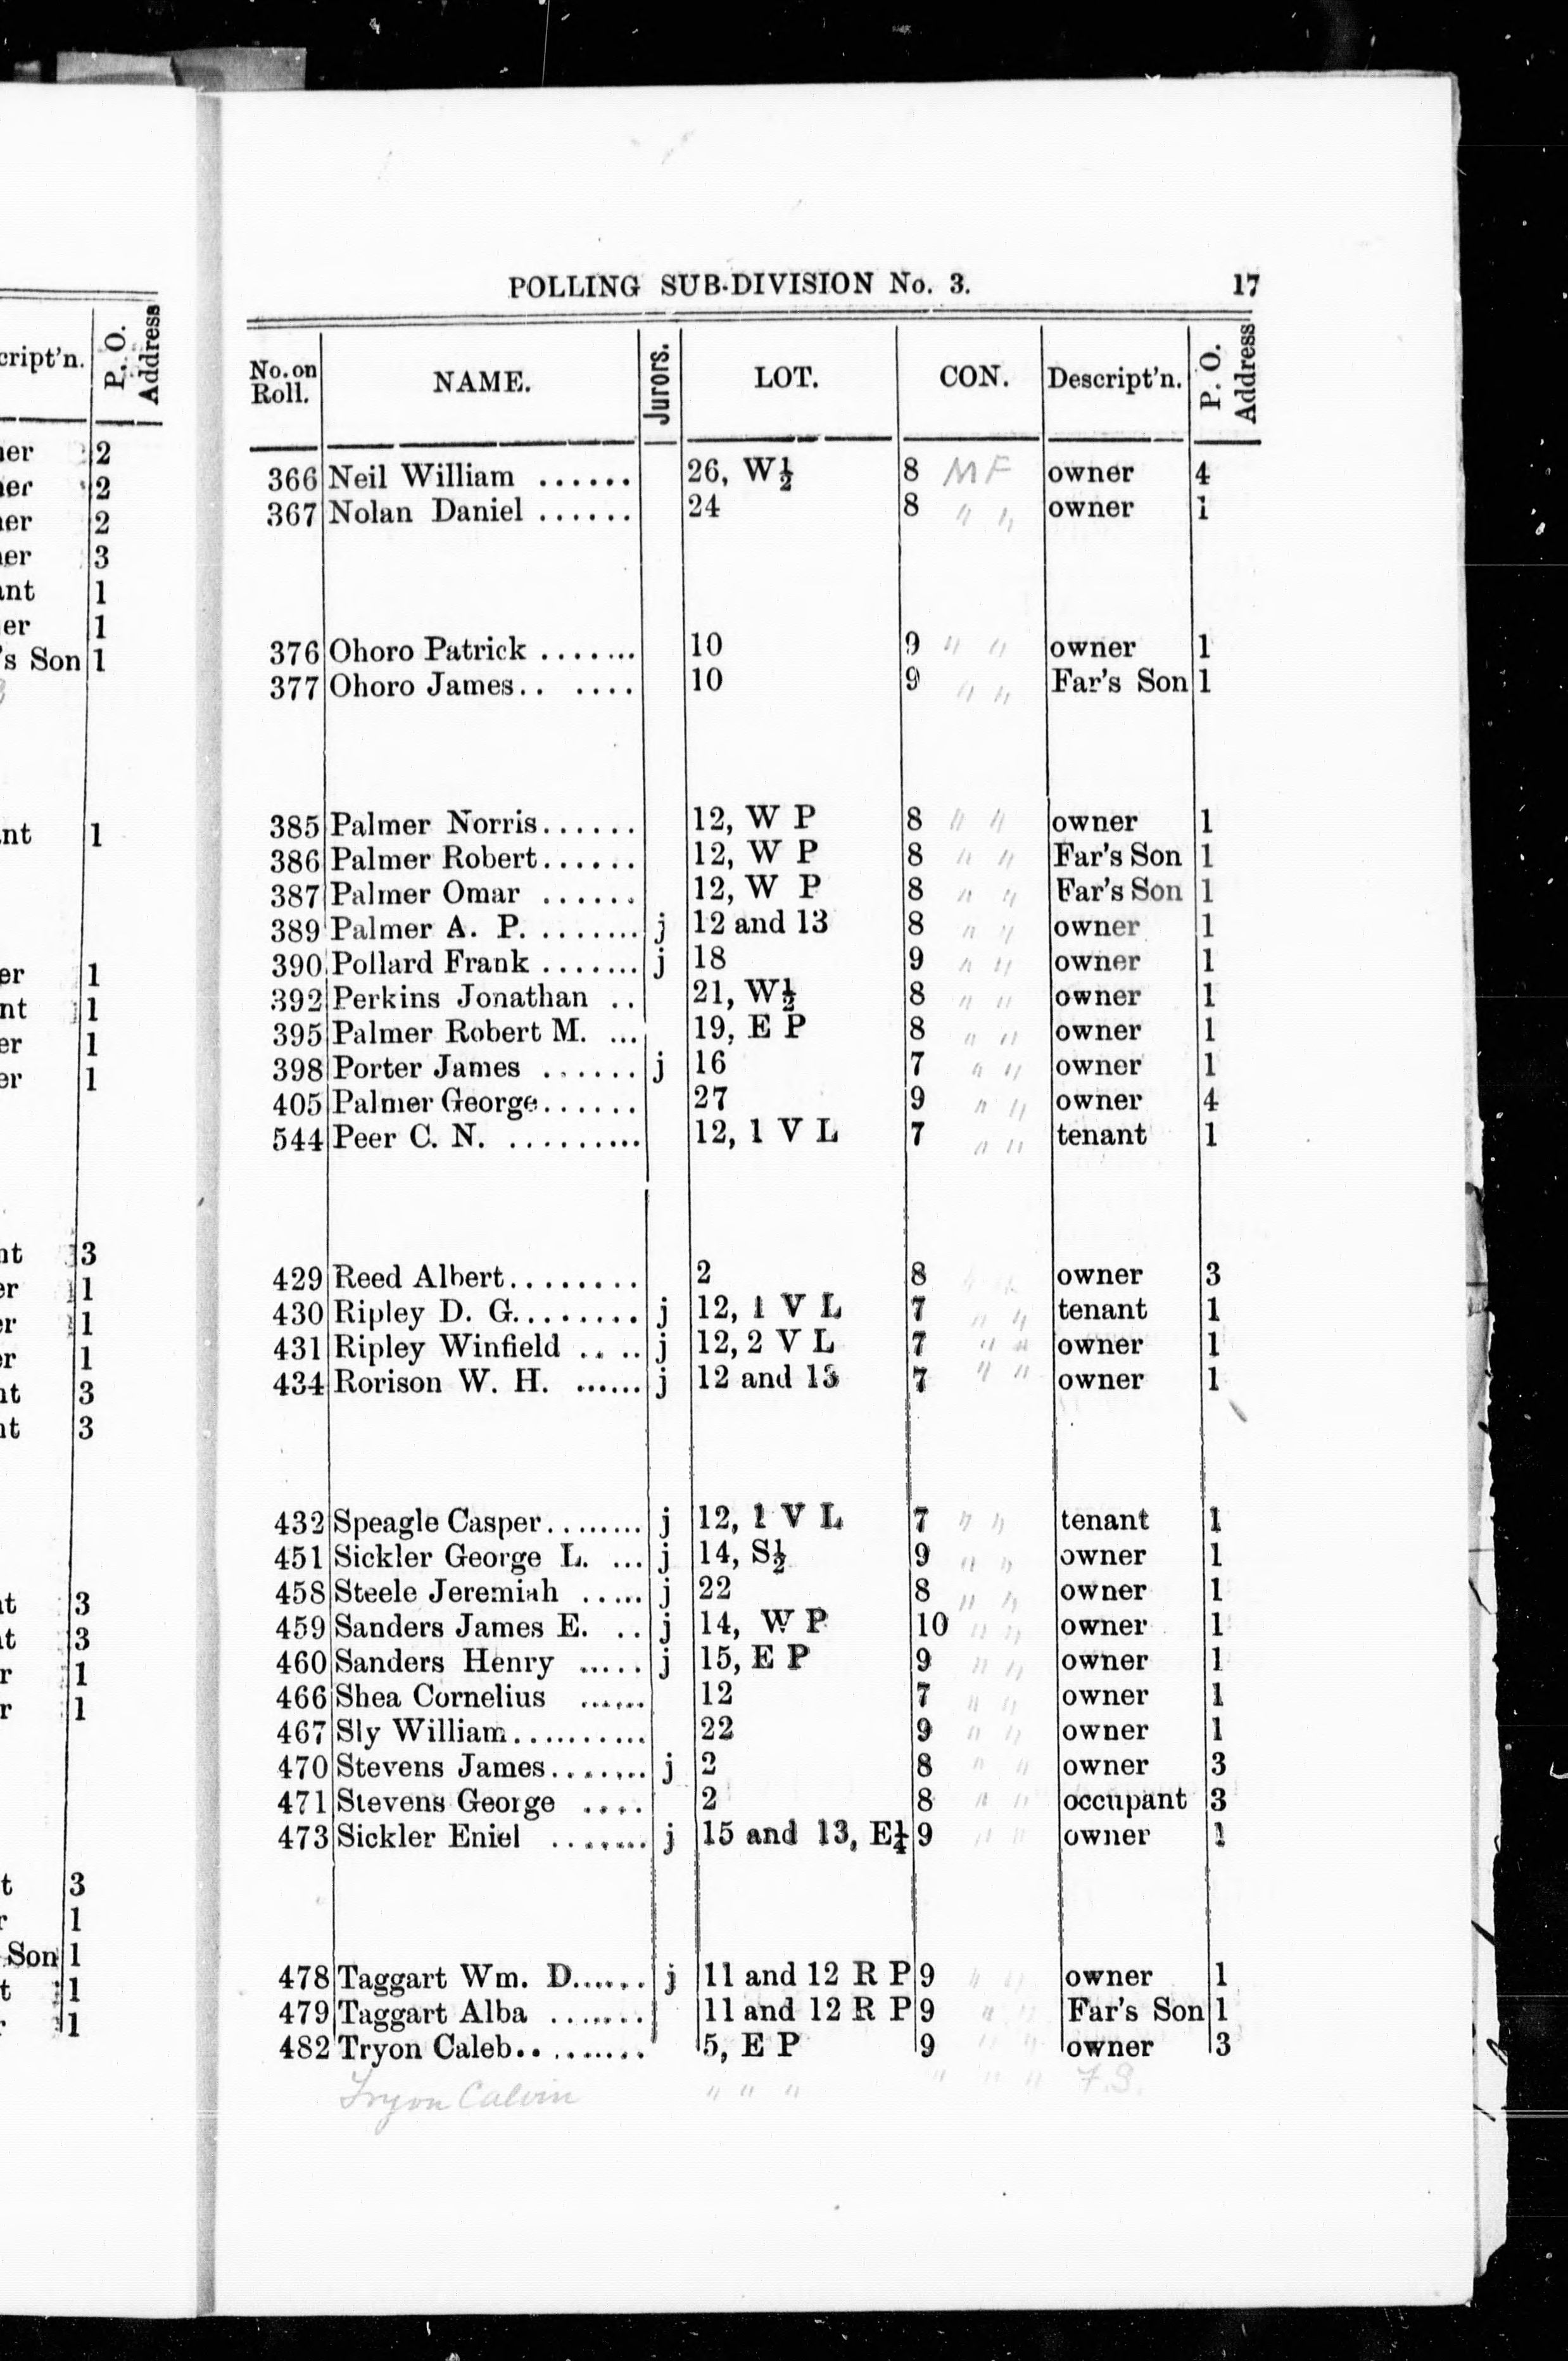 cript'n. P. O. Address
er 2
er 2
er 2
er 3
ant 1
er 1
's Son 1
nt 1
er 1
nt 1
er 1
er 1
nt 3
er 1
er 1
r 1
nt 3
nt 3
t 3
t 3
r 1
r 1
t 3
r 1
Son 1
t 1
r 1
POLLING SUB-DIVISION No. 3. 17
No. on Roll. NAME. Jurors. LOT. CON. Descript'n. P. O. Address
366 Neil William ...... 26, W½ 8 MF owner 4
367 Nolan Daniel ...... 24 8 " " owner 1
376 Ohoro Patrick ....... 10 9 " " owner 1
377 Ohoro James.. .... 10 9 " " Far's Son 1
385 Palmer Norris...... 12, W P 8 " " owner 1
386 Palmer Robert...... 12, W P 8 " " Far's Son 1
387 Palmer Omar ...... 12, W P 8 " " Far's Son 1
389 Palmer A. P. ........ j 12 and 13 8 " " owner 1
390 Pollard Frank ....... j 18 9 " " owner 1
392 Perkins Jonathan .. 21, W½ 8 " " owner 1
395 Palmer Robert M. ... 19, E P 8 " " owner 1
398 Porter James ...... j 16 7 " " owner 1
405 Palmer George...... 27 9 " " owner 4
544 Peer C. N. ......... 12, 1 V L 7 " " tenant 1
429 Reed Albert........ 2 8 " " owner 3
430 Ripley D. G........ j 12, 1 V L 7 " " tenant 1
431 Ripley Winfield .. .. j 12, 2 V L 7 " " owner 1
434 Rorison W. H. ...... j 12 and 13 7 " " owner 1
432 Speagle Casper......... j 12, 1 V L 7 " " tenant 1
451 Sickler George L. ... j 14, S½ 9 " " owner 1
458 Steele Jeremiah ..... j 22 8 " " owner 1
459 Sanders James E. .. j 14, W P 10 " " owner 1
460 Sanders Henry ..... j 15, E P 9 " " owner 1
466 Shea Cornelius ...... 12 7 " " owner 1
467 Sly William........... 22 9 " " owner 1
470 Stevens James........ j 2 8 " " owner 3
471 Stevens George .... 2 8 " " occupant 3
473 Sickler Eniel ........ j 15 and 13, E¼ 9 " " owner 1
478 Taggart Wm. D...... j 11 and 12 R P 9 " " owner 1
479 Taggart Alba ....... 11 and 12 R P 9 " " Far's Son 1
482 Tryon Caleb.......... 5, E P 9 " " owner 3
Tryon Calvin " " " " " " F.S.